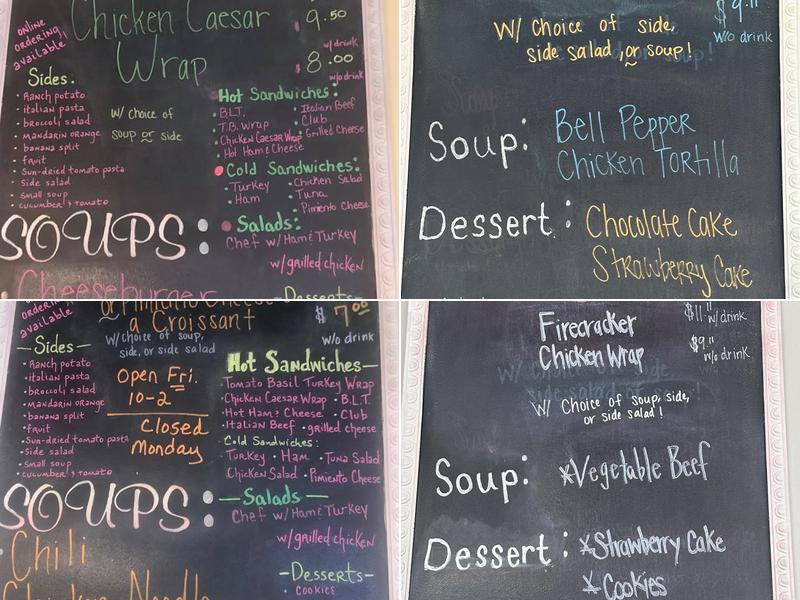 Chicken Caesar
Wrap
online
ordering
available
9.50
w/drink
8.00
w/o drink
Sides:
Ranch potato
italian pasta
broccoli salad
mandarin orange
banana split
fruit
Sun-dried tomato pasta
Side salad
small soup
cucumber & tomato
w/ choice of
soup or side
Hot Sandwiches:
B.L.T.
T.B. Wrap
Chicken Caesar Wrap
Hot Ham & Cheese
Italian Beef
Club
Grilled Cheese
Cold Sandwiches:
Turkey
Ham
Chicken Salad
Tuna
Pimiento Cheese
SOUPS:
Salads:
Chef w/Ham & Turkey
w/grilled chicken
Cheeseburger
Desserts
w/o drink
W/ Choice of side,
side salad, or soup!
Soup:
Bell Pepper
Chicken Tortilla
Dessert:
Chocolate Cake
Strawberry Cake
ordering
available
or Pimiento Cheese
a Croissant
$ 7.00
w/o drink
w/choice of soup,
side, or side salad
—Sides—
Ranch potato
italian pasta
broccoli salad
mandarin orange
banana split
fruit
Sun-dried tomato pasta
Side salad
small soup
cucumber & tomato
Open Fri.
10-2
Closed
Monday
Hot Sandwiches—
Tomato Basil Turkey Wrap
Chicken Caesar Wrap • B.L.T.
Hot Ham & Cheese • Club
Italian Beef • grilled cheese
Cold Sandwiches:
Turkey • Ham • Tuna Salad
Chicken Salad • Pimiento Cheese
SOUPS:
—Salads—
Chef w/Ham & Turkey
w/grilled chicken
Chili
Chicken Noodle
-Desserts-
• Cookies
Firecracker
Chicken Wrap
$11.11 w/drink
$9.11
w/o drink
W/ Choice of soup, side,
or side salad!
Soup:
*Vegetable Beef
Dessert:
*Strawberry Cake
*Cookies